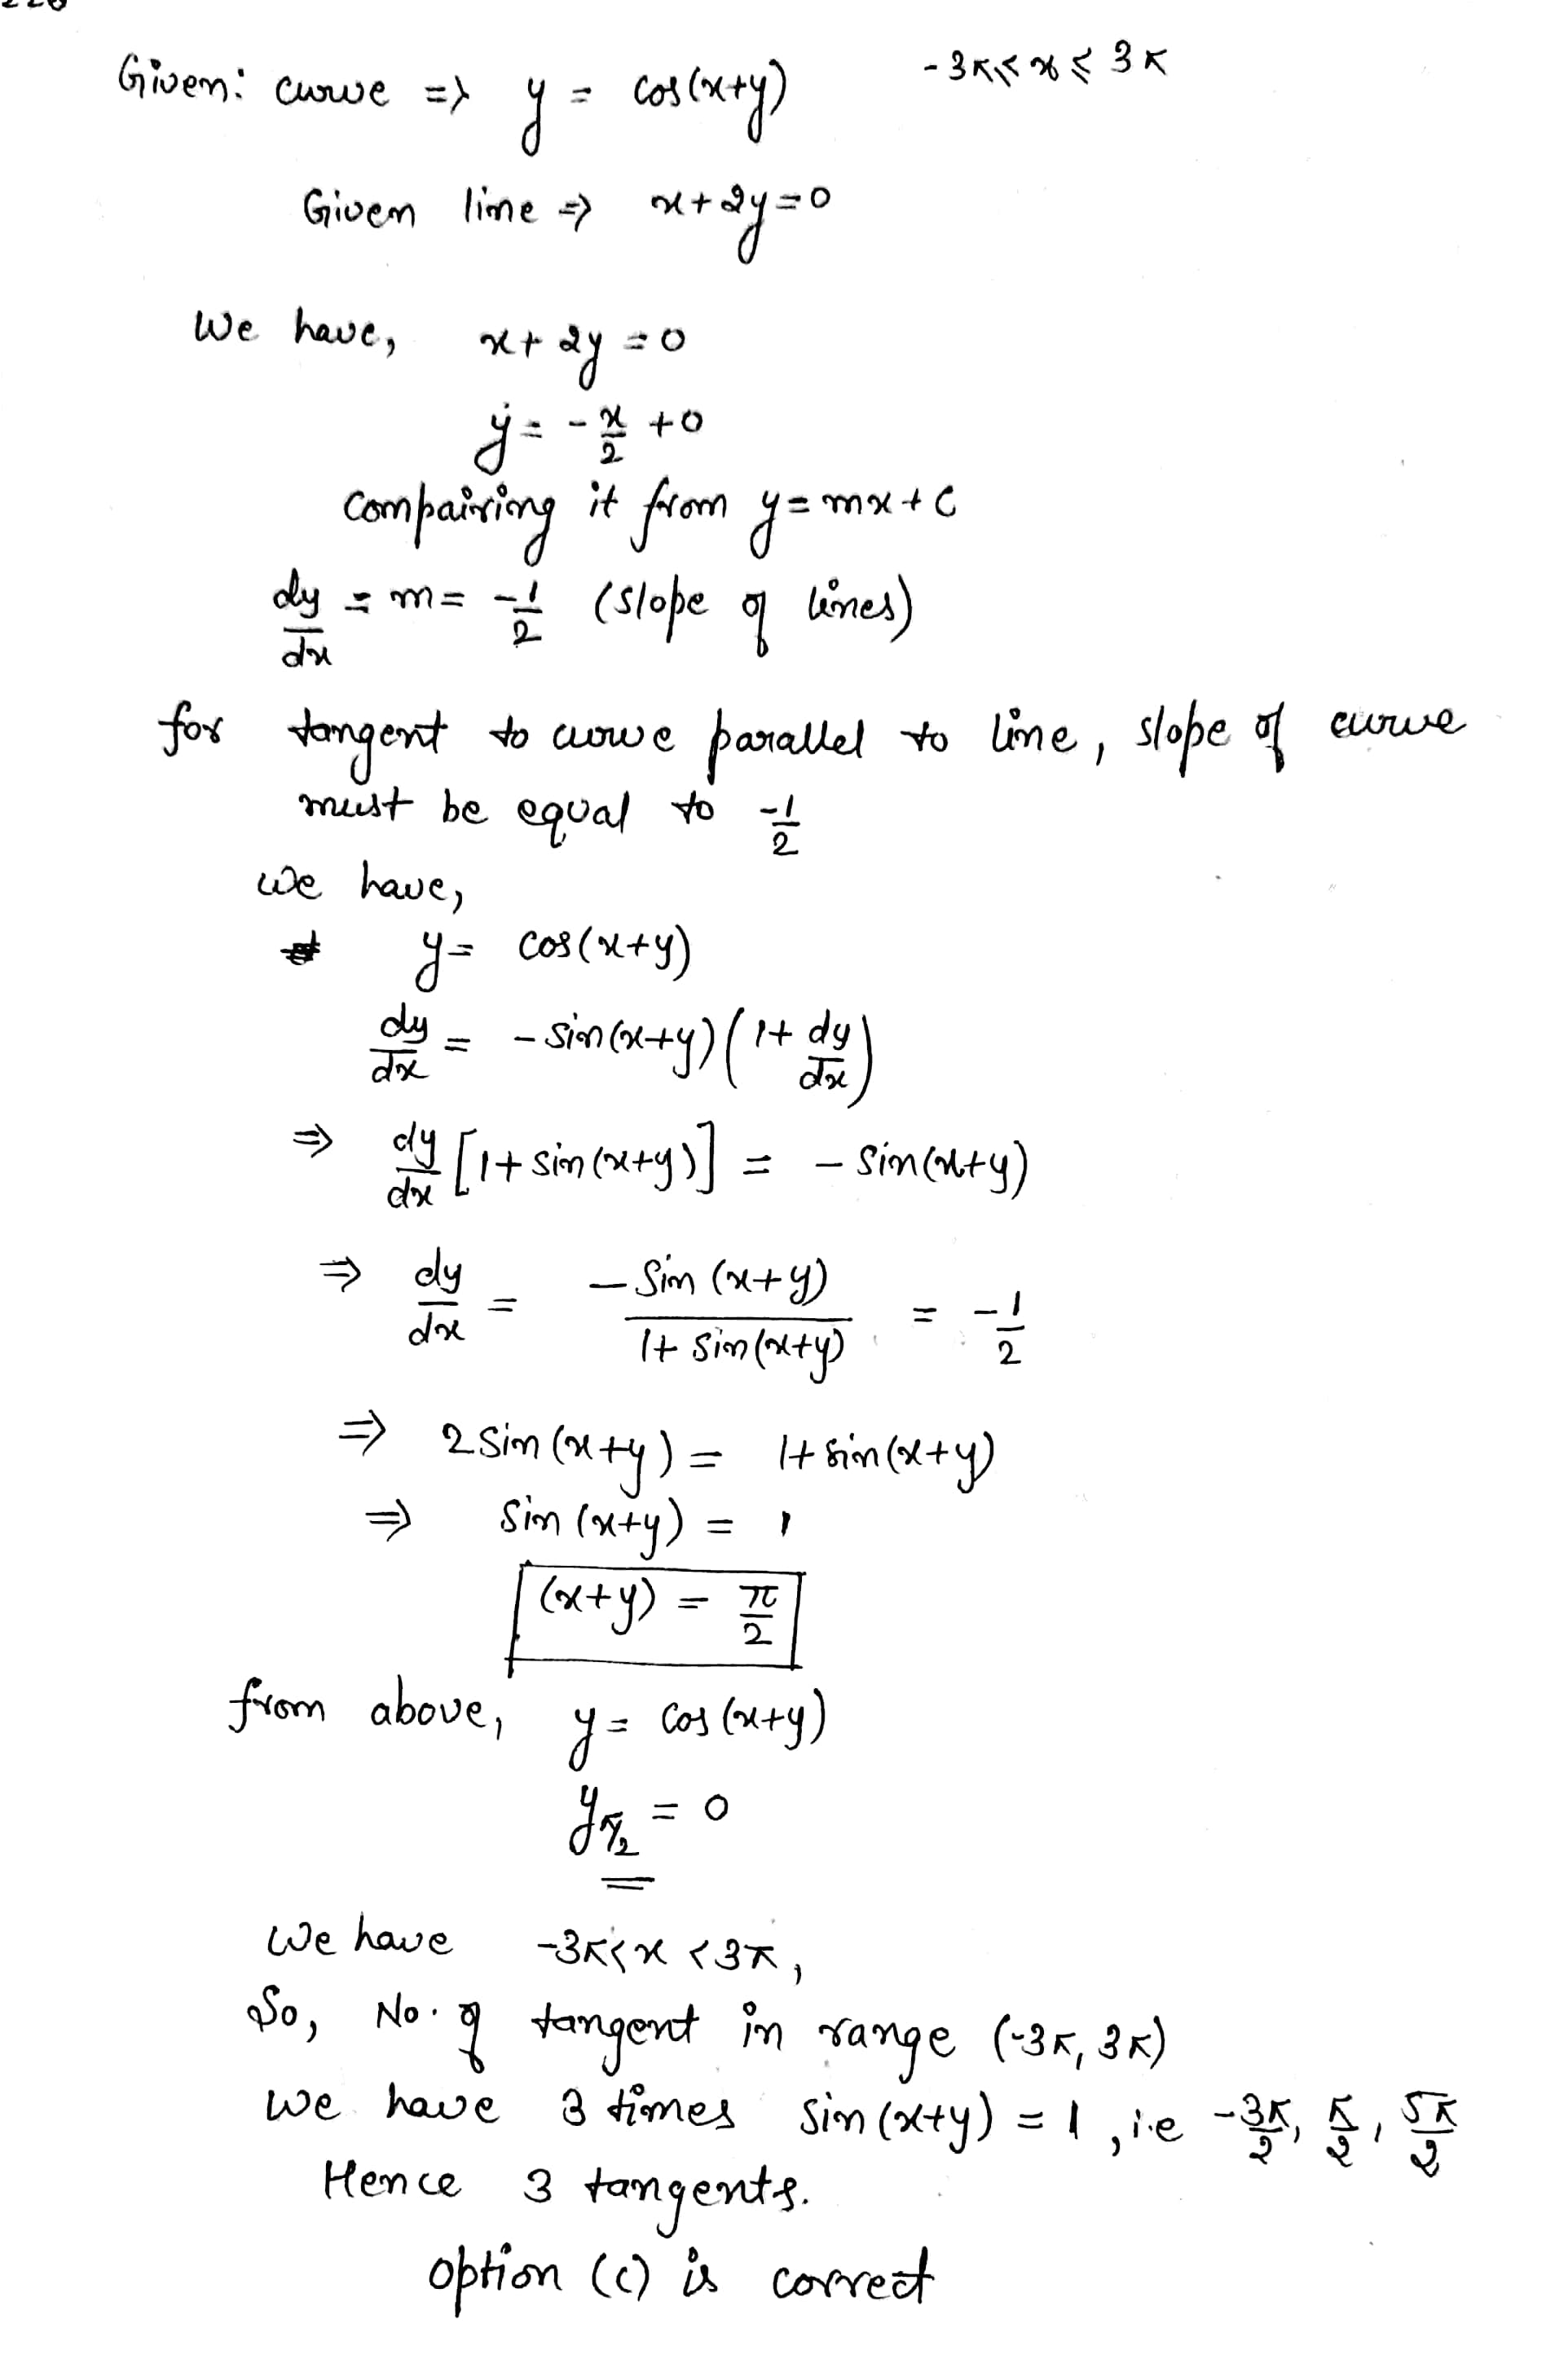 Given: curve => y = cos(x+y) -3π≤ x ≤ 3π
Given line => x+2y=0
We have, x+2y=0
y = -x/2 +0
Compairing it from y=mx+C
dy/dx = m = -1/2 (slope of lines)
for tangent to curve parallel to line, slope of curve
must be equal to -1/2
we have,
y= cos(x+y)
dy/dx = -sin(x+y)(1+ dy/dx)
=> dy/dx [1+sin(x+y)] = -sin(x+y)
=> dy/dx = -sin(x+y)/1+sin(x+y) = -1/2
=> 2sin(x+y) = 1+sin(x+y)
=> sin(x+y) = 1
(x+y) = π/2
from above, y= cos(x+y)
yπ/2 = 0
We have -3π<x<3π,
So, No. of tangent in range (-3π, 3π)
we have 3 times sin(x+y) = 1, i.e -3π/2, π/2, 5π/2
Hence 3 tangents.
option (c) is correct